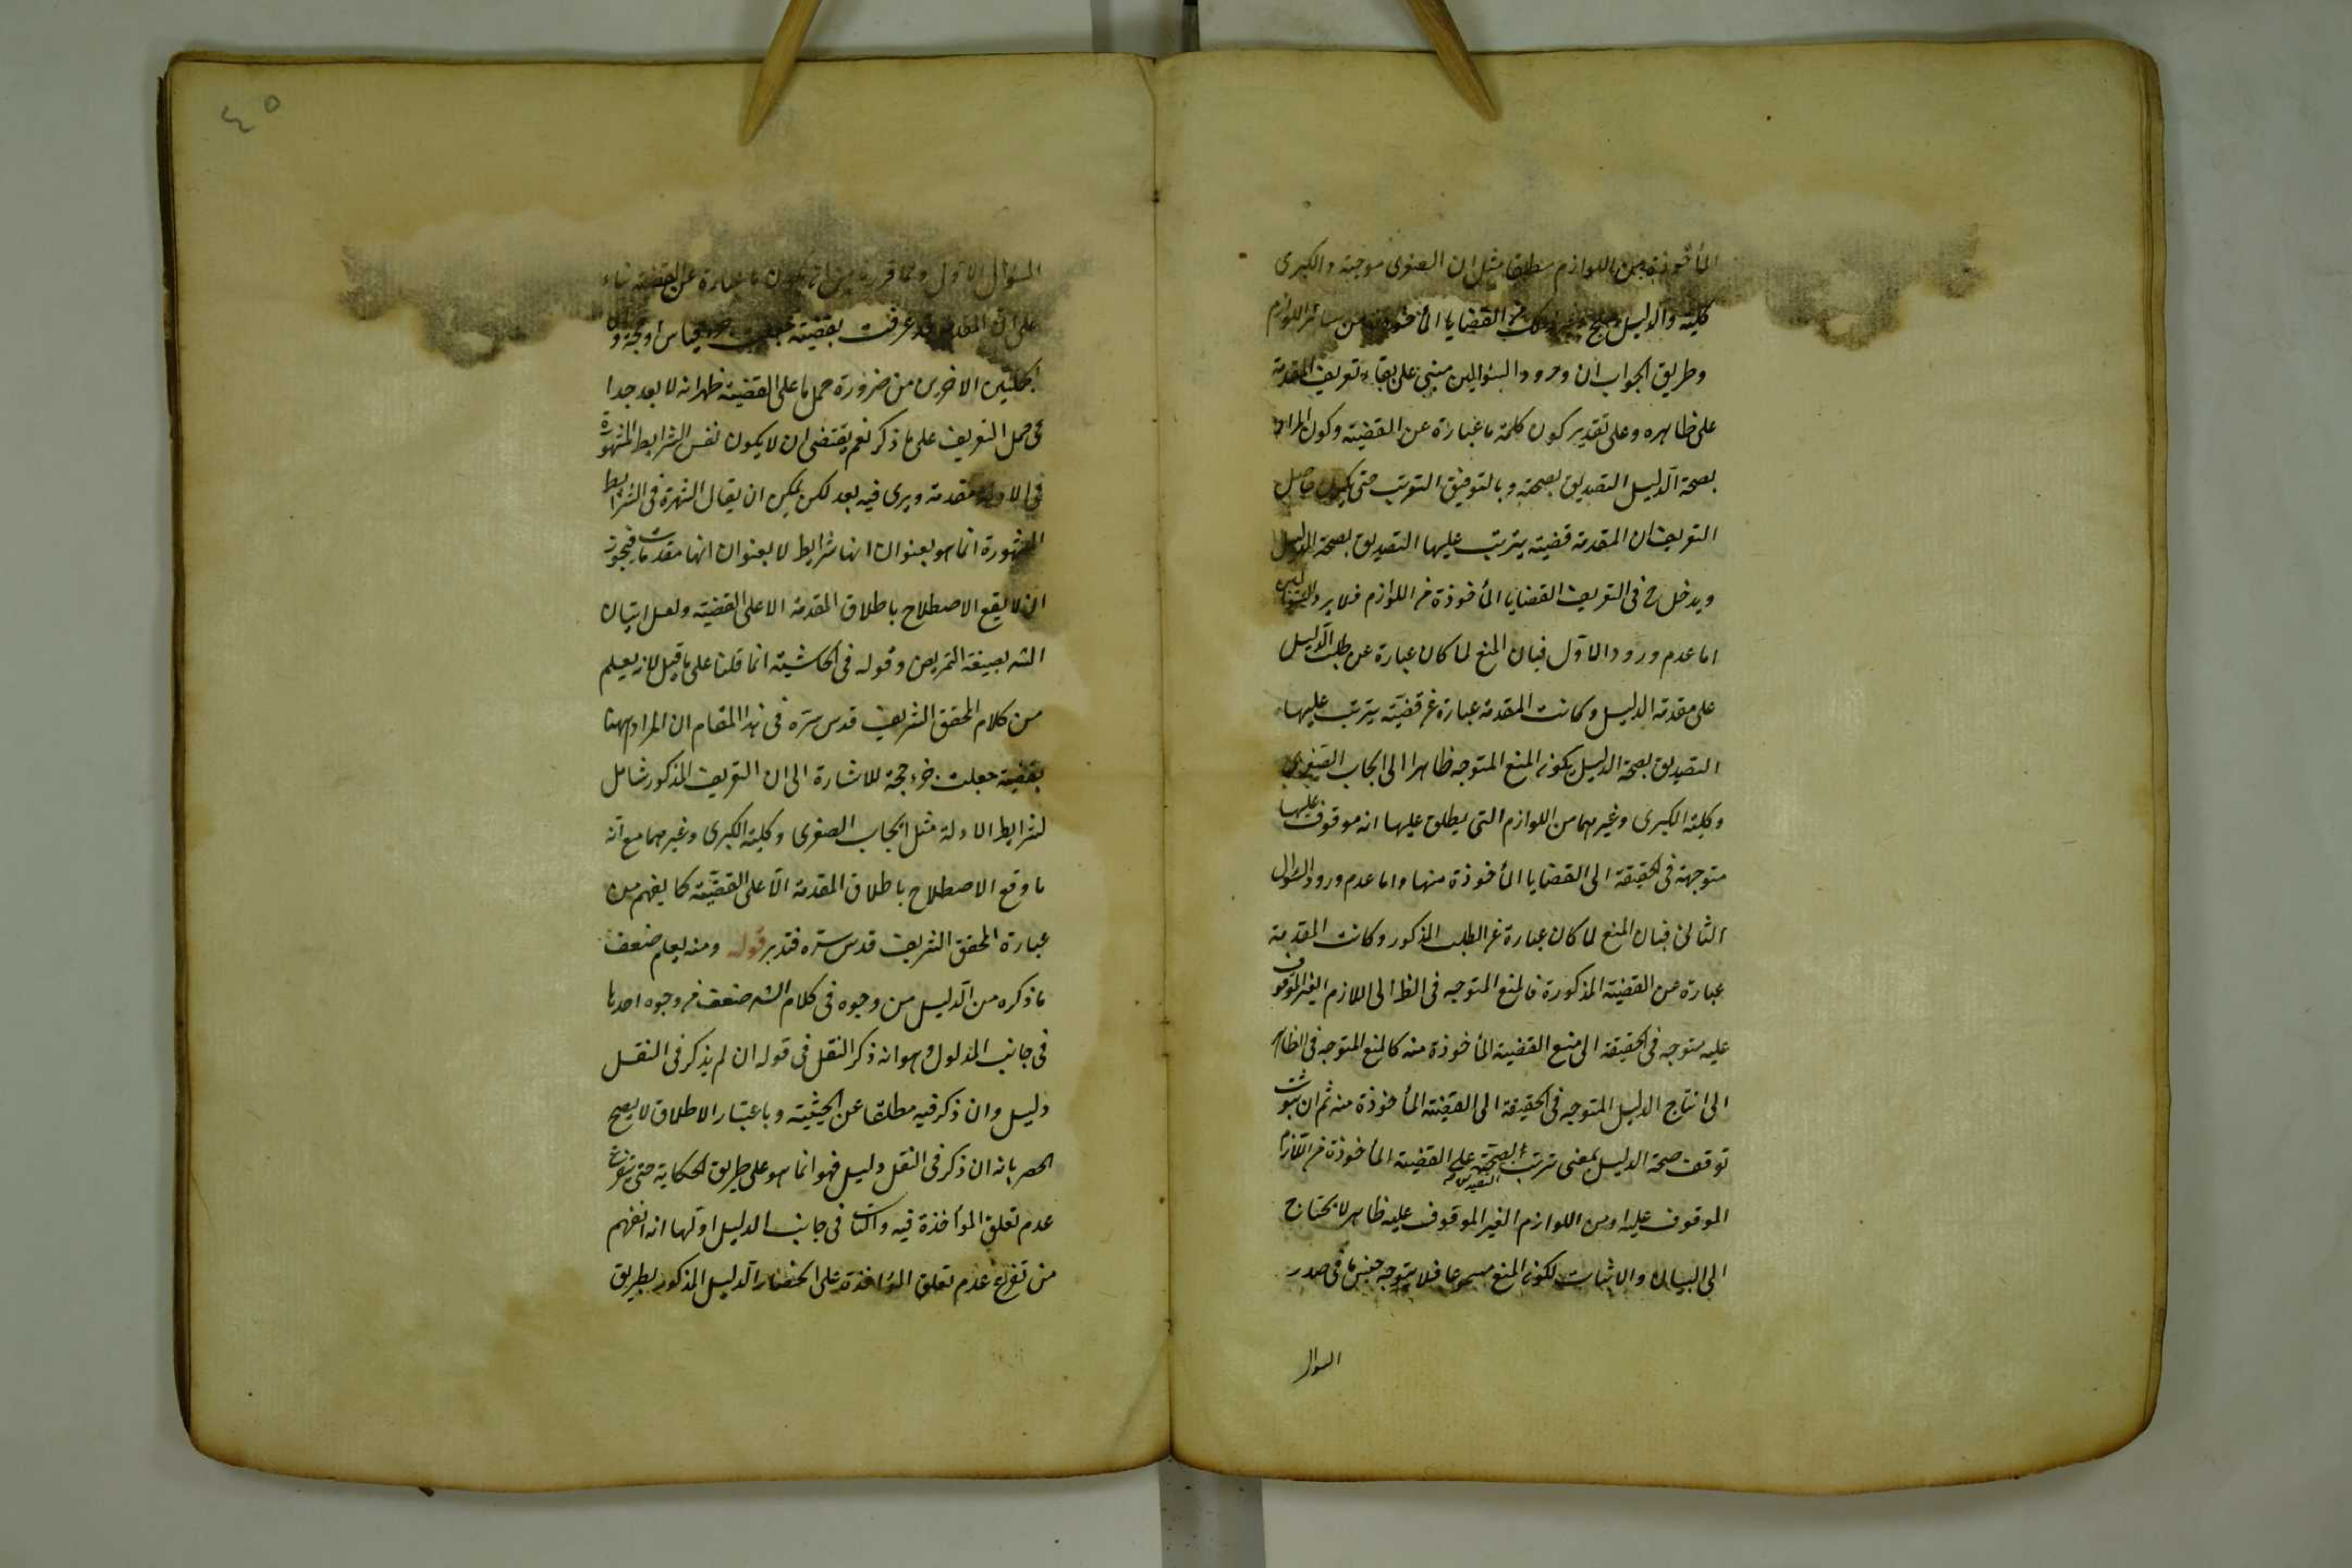 المأخوذة من اللوازم مطلقا مثل ان الصغرى موجبة والكبرى
كلية والدليل القضايا المأخوذة من سائر اللوازم
وطريق الجواب ان ورود السؤالين مبنى على بقاء تعريف المقدمة
على ظاهره وعلى تقدير كون كلمة ما عبارة عن القضية وكون المراد
بصحة الدليل التصديق بصحته وبالتوقف الترتب حتى يكون حاصل
التعريف ان المقدمة قضية يترتب عليها التصديق بصحة الدليل
ويدخل ح فى التعريف القضايا المأخوذة من اللوازم فلا يرد السؤالين
اما عدم ورود الاول فبان المنع لما كان عبارة عن طلب الدليل
على مقدمة الدليل وكانت المقدمة عبارة عن قضية يترتب عليها
التصديق بصحة الدليل يكون المنع المتوجه ظاهرا الى ايجاب الصغرى
وكلية الكبرى وغيرهما من اللوازم التى يطلق عليها انه موقوف عليها
متوجهة فى الحقيقة الى القضايا المأخوذة منها واما عدم ورود السؤال
الثانى فبان المنع لما كان عبارة عن الطلب المذكور وكانت المقدمة
عبارة عن القضية المذكورة فالمنع المتوجه فى الظ الى اللازم الغير الموقوف
عليه متوجه فى الحقيقة الى منع القضية المأخوذة منه كالمنع المتوجه فى الظاهر
الى انتاج الدليل المتوجه فى الحقيقة الى القضية المأخوذة منه ثم ان ثبوت
توقف صحة الدليل بمعنى ترتب التصديق بصحته على القضية المأخوذة من اللازم
الموقوف عليه او من اللوازم الغير الموقوف عليه ظاهر لا يحتاج
الى البيان والاثبات لكون المنع مسموعا فلا يتوجه جنس ما فى صدر
السوال
السؤال الاول وما قررنا من ان يكون ما عبارة عن القضية بناء
على ان المقدمة قد عرفت بقضية جعلت جزء قياس او حجة وان
الجملتين الاخريين من ضرورة حمل ما على القضية ظهر انه لا بعد جدا
فى حمل التعريف على ما ذكر نعم يقتضى ان لا يكون نفس الشرايط المشهورة
فى الاولة مقدمة ويرى فيه بعد لكن يمكن ان يقال الشهرة فى الشرايط
المشهورة انما هو بعنوان انها شرايط لا بعنوان انها مقدمات فيجوز
ان لا يقع الاصطلاح باطلاق المقدمة الا على القضية ولعل اتيان
الشه بصيغة التمريض وقوله فى الحاشية انما قلنا على ما قيل لانه يعلم
من كلام المحقق الشريف قدس سره فى هذا المقام ان المراد ههنا
بقضية جعلت جزء حجة للاشارة الى ان التعريف المذكور شامل
لشرايط الادلة مثل ايجاب الصغرى وكلية الكبرى وغيرهما مع انه
ما وقع الاصطلاح باطلاق المقدمة الا على القضية كما يفهم من
عبارة المحقق الشريف قدس سره فتدبر قوله ومنه يعلم ضعف
ما ذكره من الدليل من وجوه فى كلام الشه ضعف من وجوه احدها
فى جانب المدلول وهو انه ذكر النقل فى قوله ان لم يذكر فى النقل
دليل وان ذكر فيه مطلقا عن الحيثية وباعتبار الاطلاق لا يصح
الحصر بانه ان ذكر فى النقل دليل فهو انما هو على طريق الحكاية حتى يتفرع
عدم تعلق المؤاخذة فيه والثانى فى جانب الدليل اولها انه انفهم
من تفرع عدم تعلق المؤاخذة على انحضار الدليل المذكور بطريق
٤٥